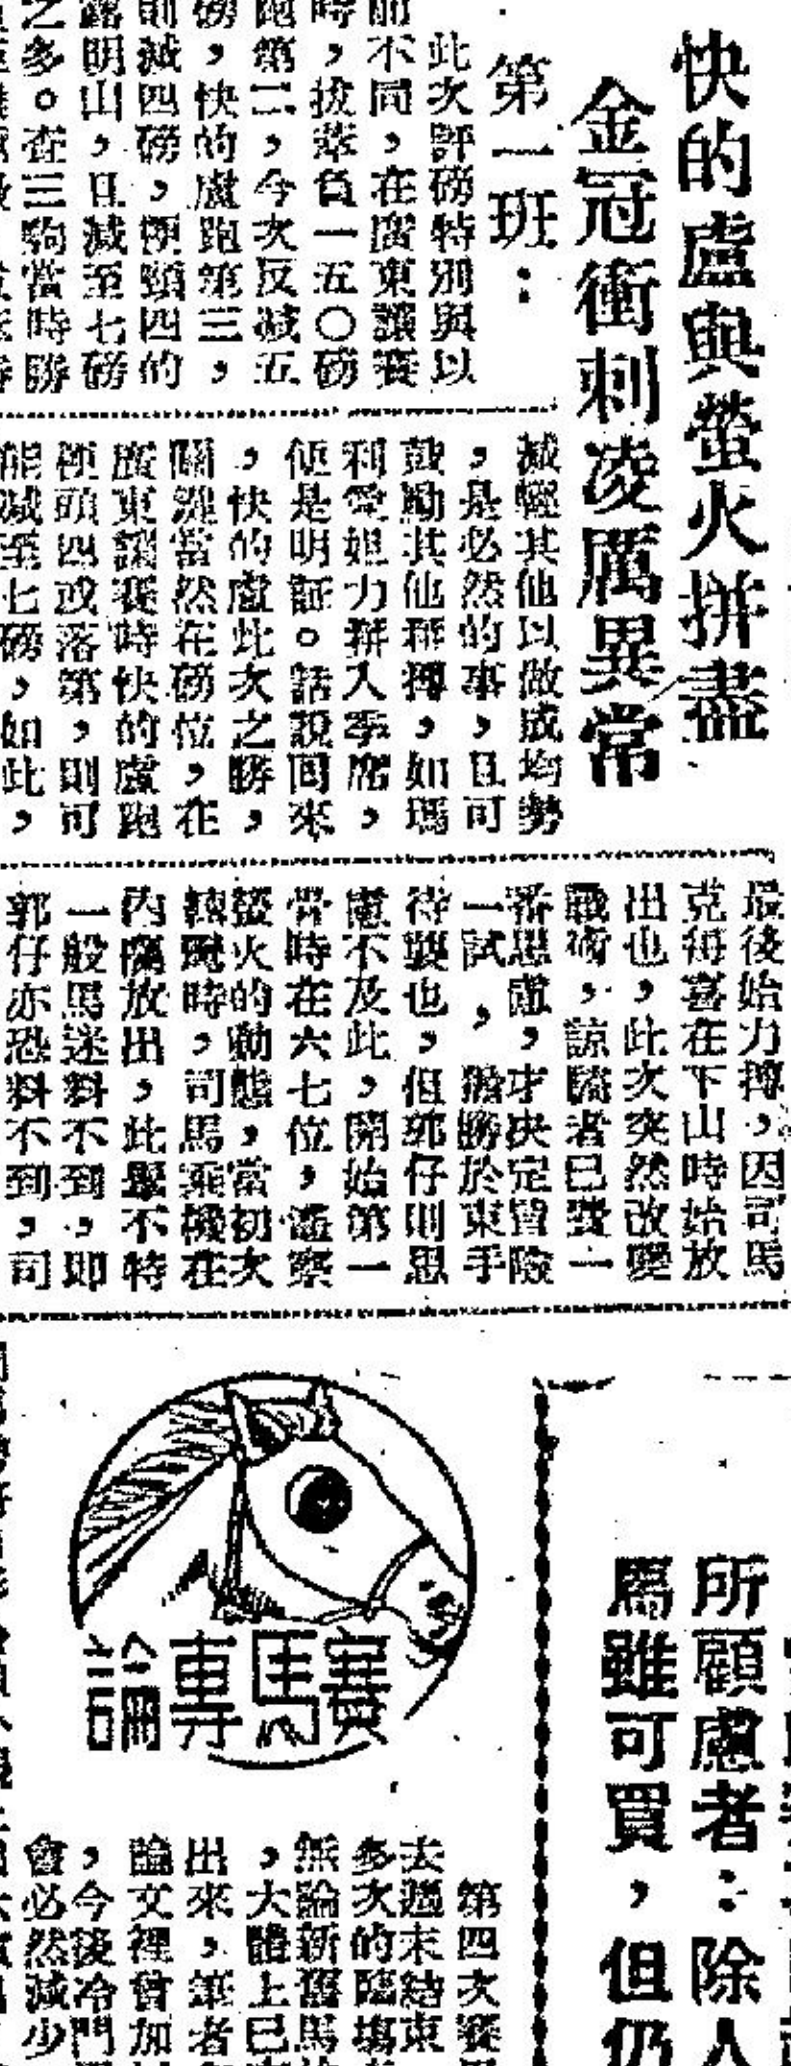 快的盧與螢火拼盡
金冠衝刺凌厲異常
第一班：
此次評磅特別與以
不同，在廣東讓賽
時，拔萃負一五〇磅
跑第二，今次反減五
磅，快的盧跑第三，
則減四磅，硬頸四的
明山，且減至七磅
之多。查三駒當時勝
減輕其他以做成均勢
，是必然的事，且可
鼓勵其他拼搏，如瑪
利愛妲力拼入季席，
便是明証。話說回來
，快的盧此次之勝，
關鍵當然在磅位，在
廣東讓賽時快的盧跑
硬頭四或落第，則可
能減至七磅，如此，
最後始力搏，因司馬
克每喜在下山時始放
出也，此次突然改變
戰術，諒騎者已費一
番思慮，才决定冒險
一試，勝於束手
待斃也，但郭仔則思
慮不及此，開始第一
骨時在六七位，監察
螢火的動態，當初次
轉彎時，司馬乘機在
內欄放出，此舉不特
一般馬迷料不到，即
郭仔亦恐料不到，司
賽馬專論
所顧慮者：除人
馬雖可買，但仍
第四次賽馬
去週末結束
多次的臨場
無論新舊馬
，大體上已
出來，筆者
論文裡曾加
，今後冷門
會必然減少